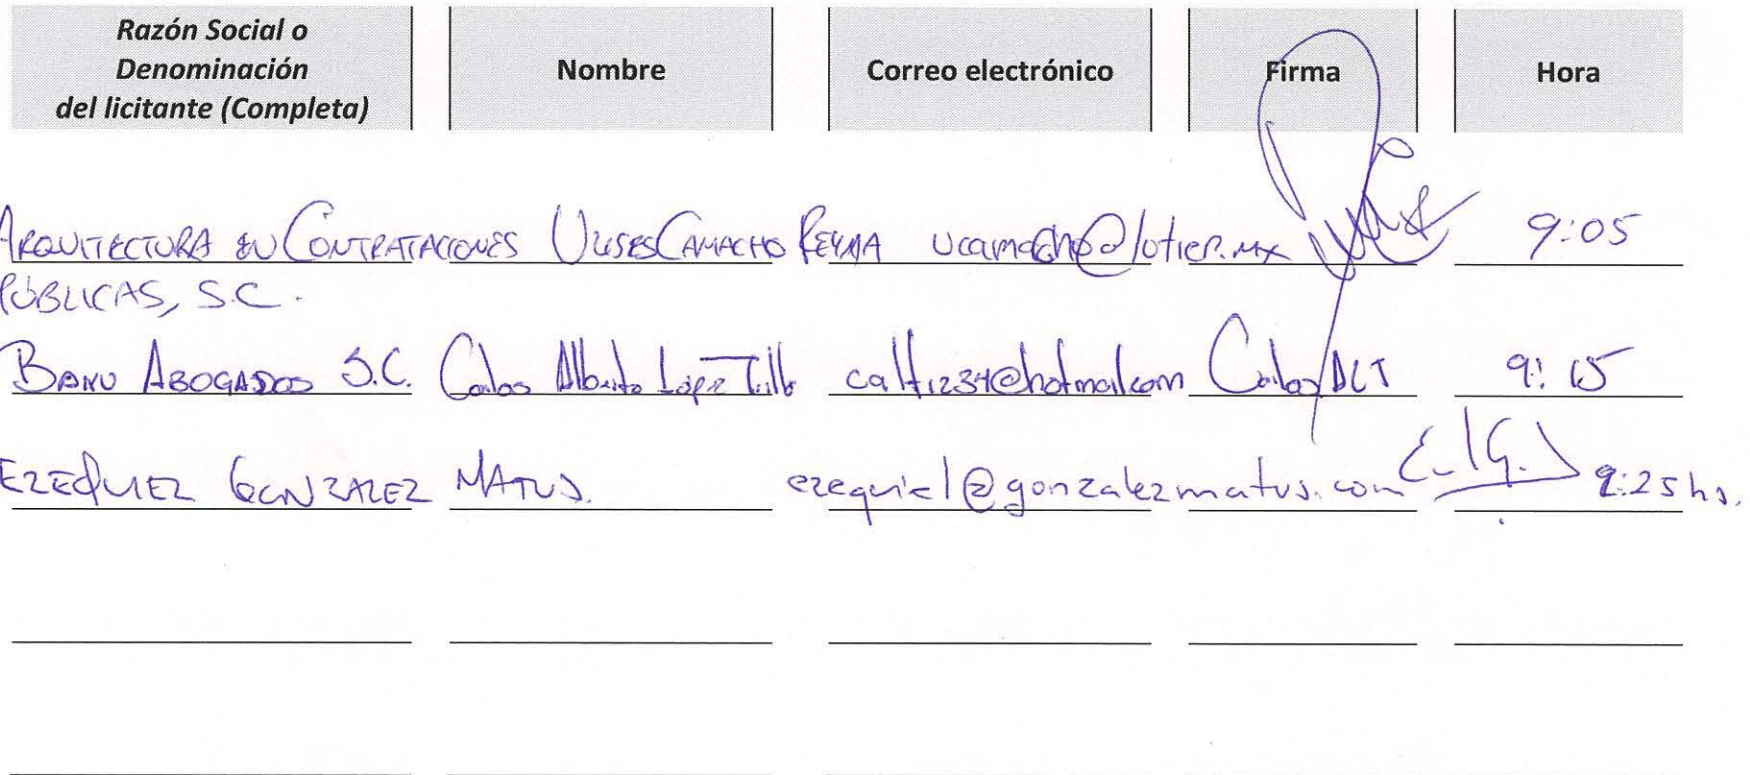 Razón Social o
Denominación
del licitante (Completa)
Nombre
Correo electrónico
Firma
Hora
ARQUITECTURA EN CONTRATACIONES ULISES CAMACHO REYNA ucamacho@lotier.mx 9:05
PÚBLICAS, S.C.
ABOGADOS S.C. Carlos Alberto López @hotmail.com Carlos ALT 9:15
EZEQUIEL GONZALEZ MATUS. ezequiel@gonzalezmatus.com E. G. 9:25 hs.